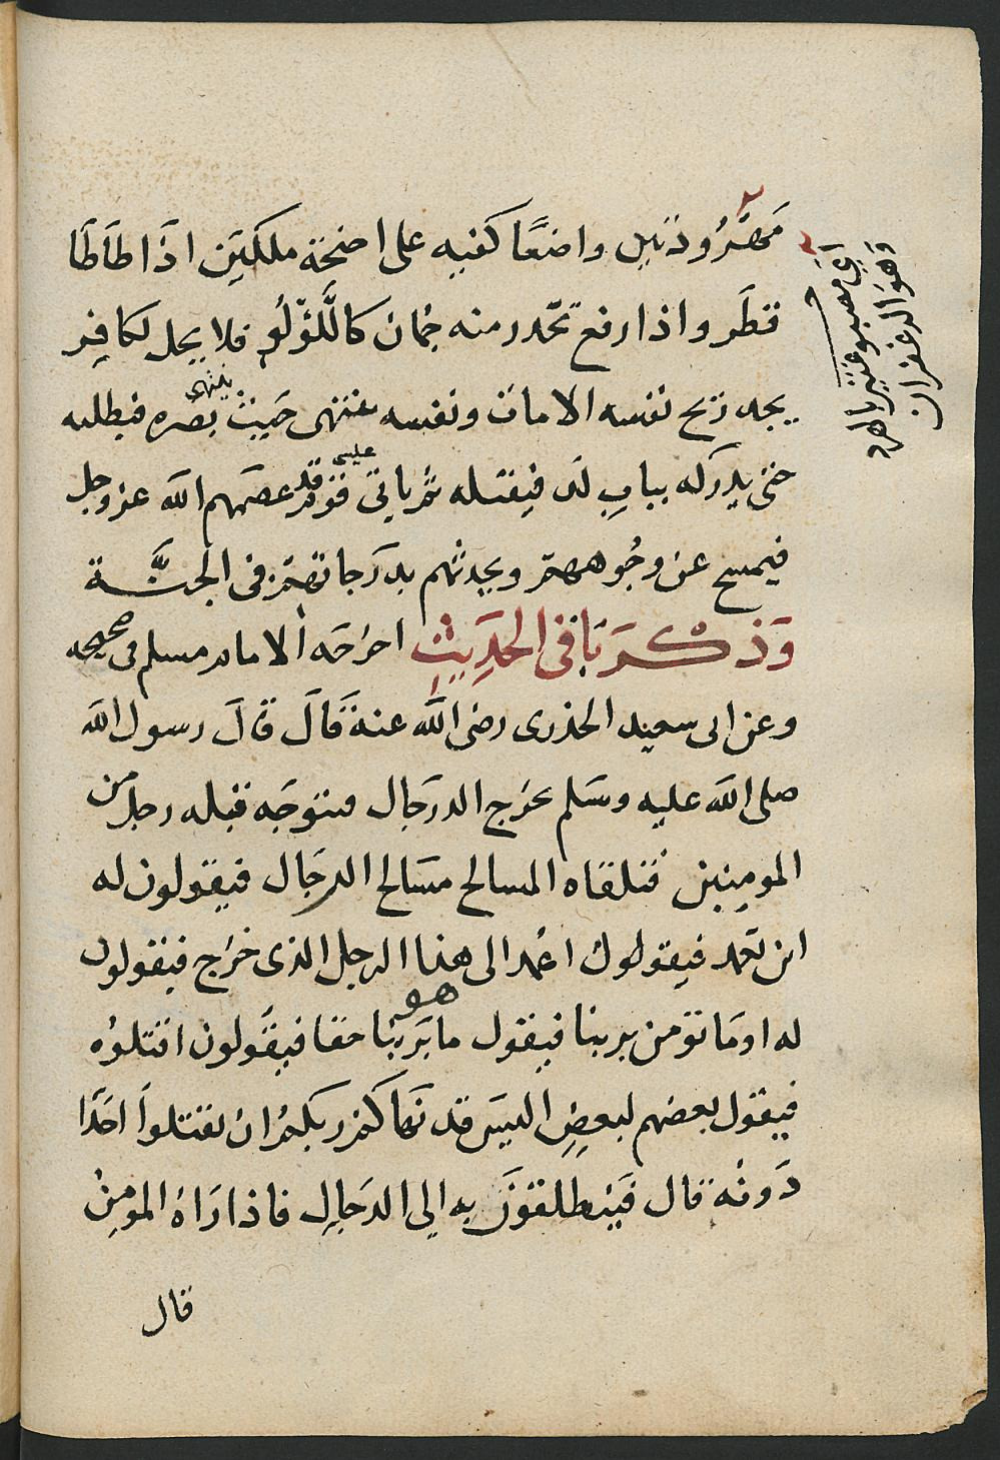 مَهْرُوذتين واضعًا كفيه على اجنحة ملكين اذا طاطا
قطَر واذا رفع تحدر منه جُمان كاللَّؤلُؤ فلا يحل لكافِر
يجد ريح نفسه الا مات ونفسه ينتهى حَيث ينتهى بصره فيطلبه
حتى يدركه ببابِ لد فيقتله ثم ياتى عليسى قوم قد عصمهم الله عز وجل
فيمسح عن وجُوههم ويحدثهم بدرَجاتهم فى الجنَّة
وَذكر باقى الحَدِيثِ اخرجَه الامام مسلم فى صحيحه
وعن ابى سعيد الخدرى رضى الله عنه قَالَ قالَ رسول الله
صلى الله عليه وسَلم يخرَج الدجَال فيتوجَه قبله رجل من
المومِنين فتلقاه المسالح مسَالح الدجَال فيقولون له
اين تعمد فيقول اعمد الى هذا الرجل الذى خرَج فيقولون
له اوما تومن بربنا فيقول ما هو بَربنا حقا فيقَولون اقتلوُه
فيقول بعضهم لبعضٍ اليسَ قد نهَاكم ربكم ان تقتلواَ احَدًا
دَونه قال فَينطلقوَن به الي الدجَالِ فاذا رَاهُ المومِنُ
قال
اي مصبوغتين بالهرد
وهو الزعفران